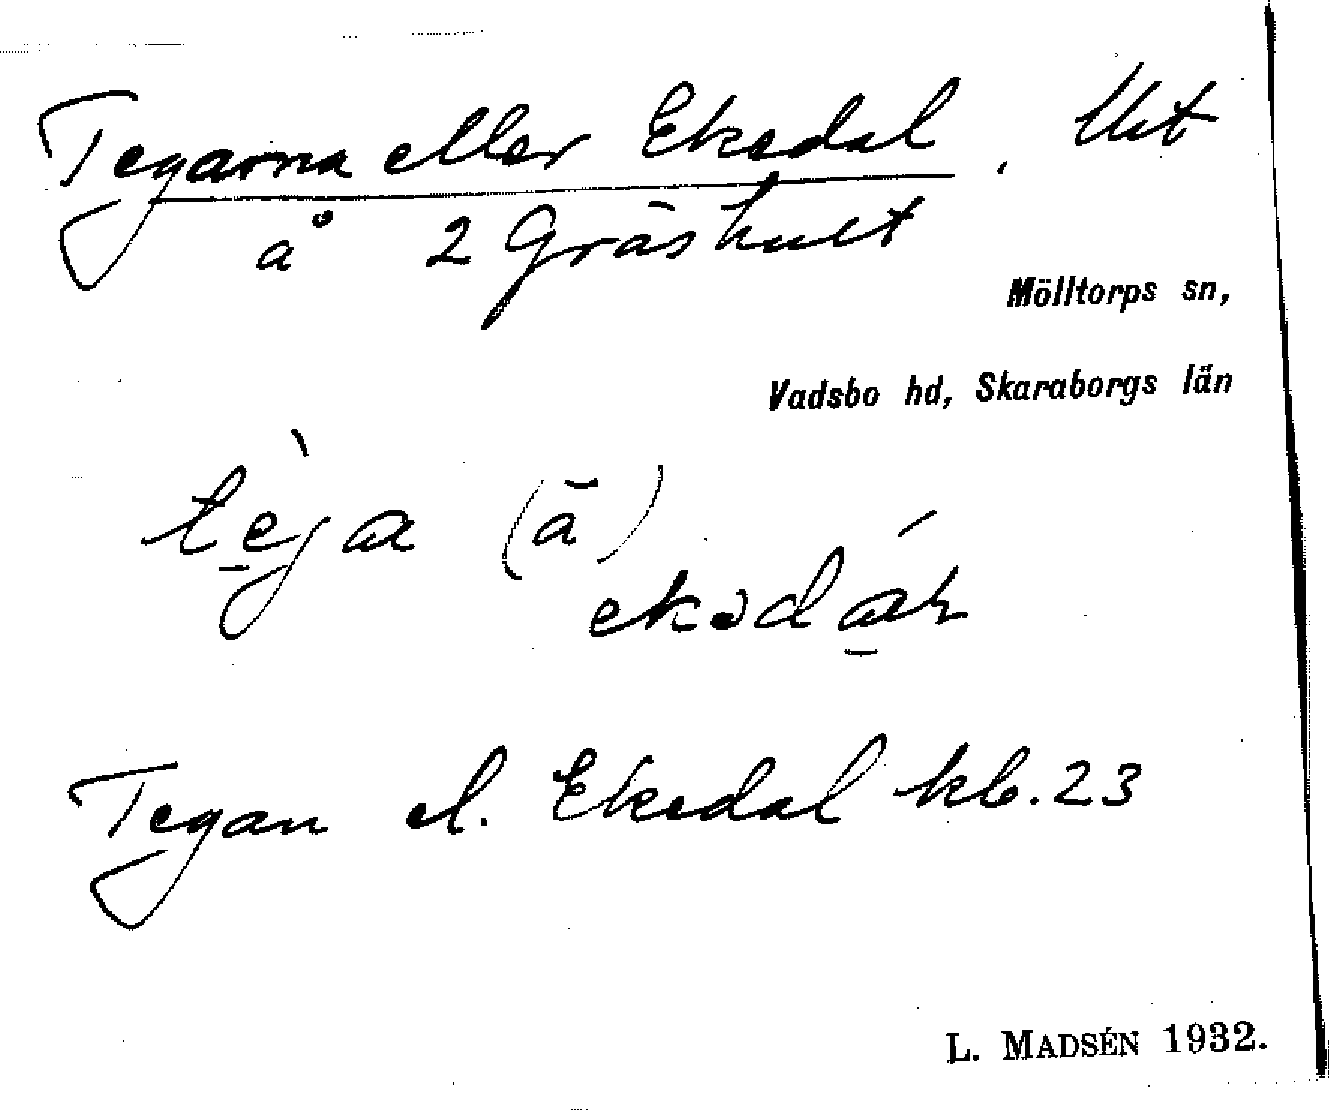 Tegarna eller Ekedal, Utt
å 2 Gräshult
Mölltorps sn,
Vadsbo hd, Skaraborgs län
tèja (ā)
ekədáɽ
Tegan el. Ekedal kb. 23
L. MADSÉN 1932.